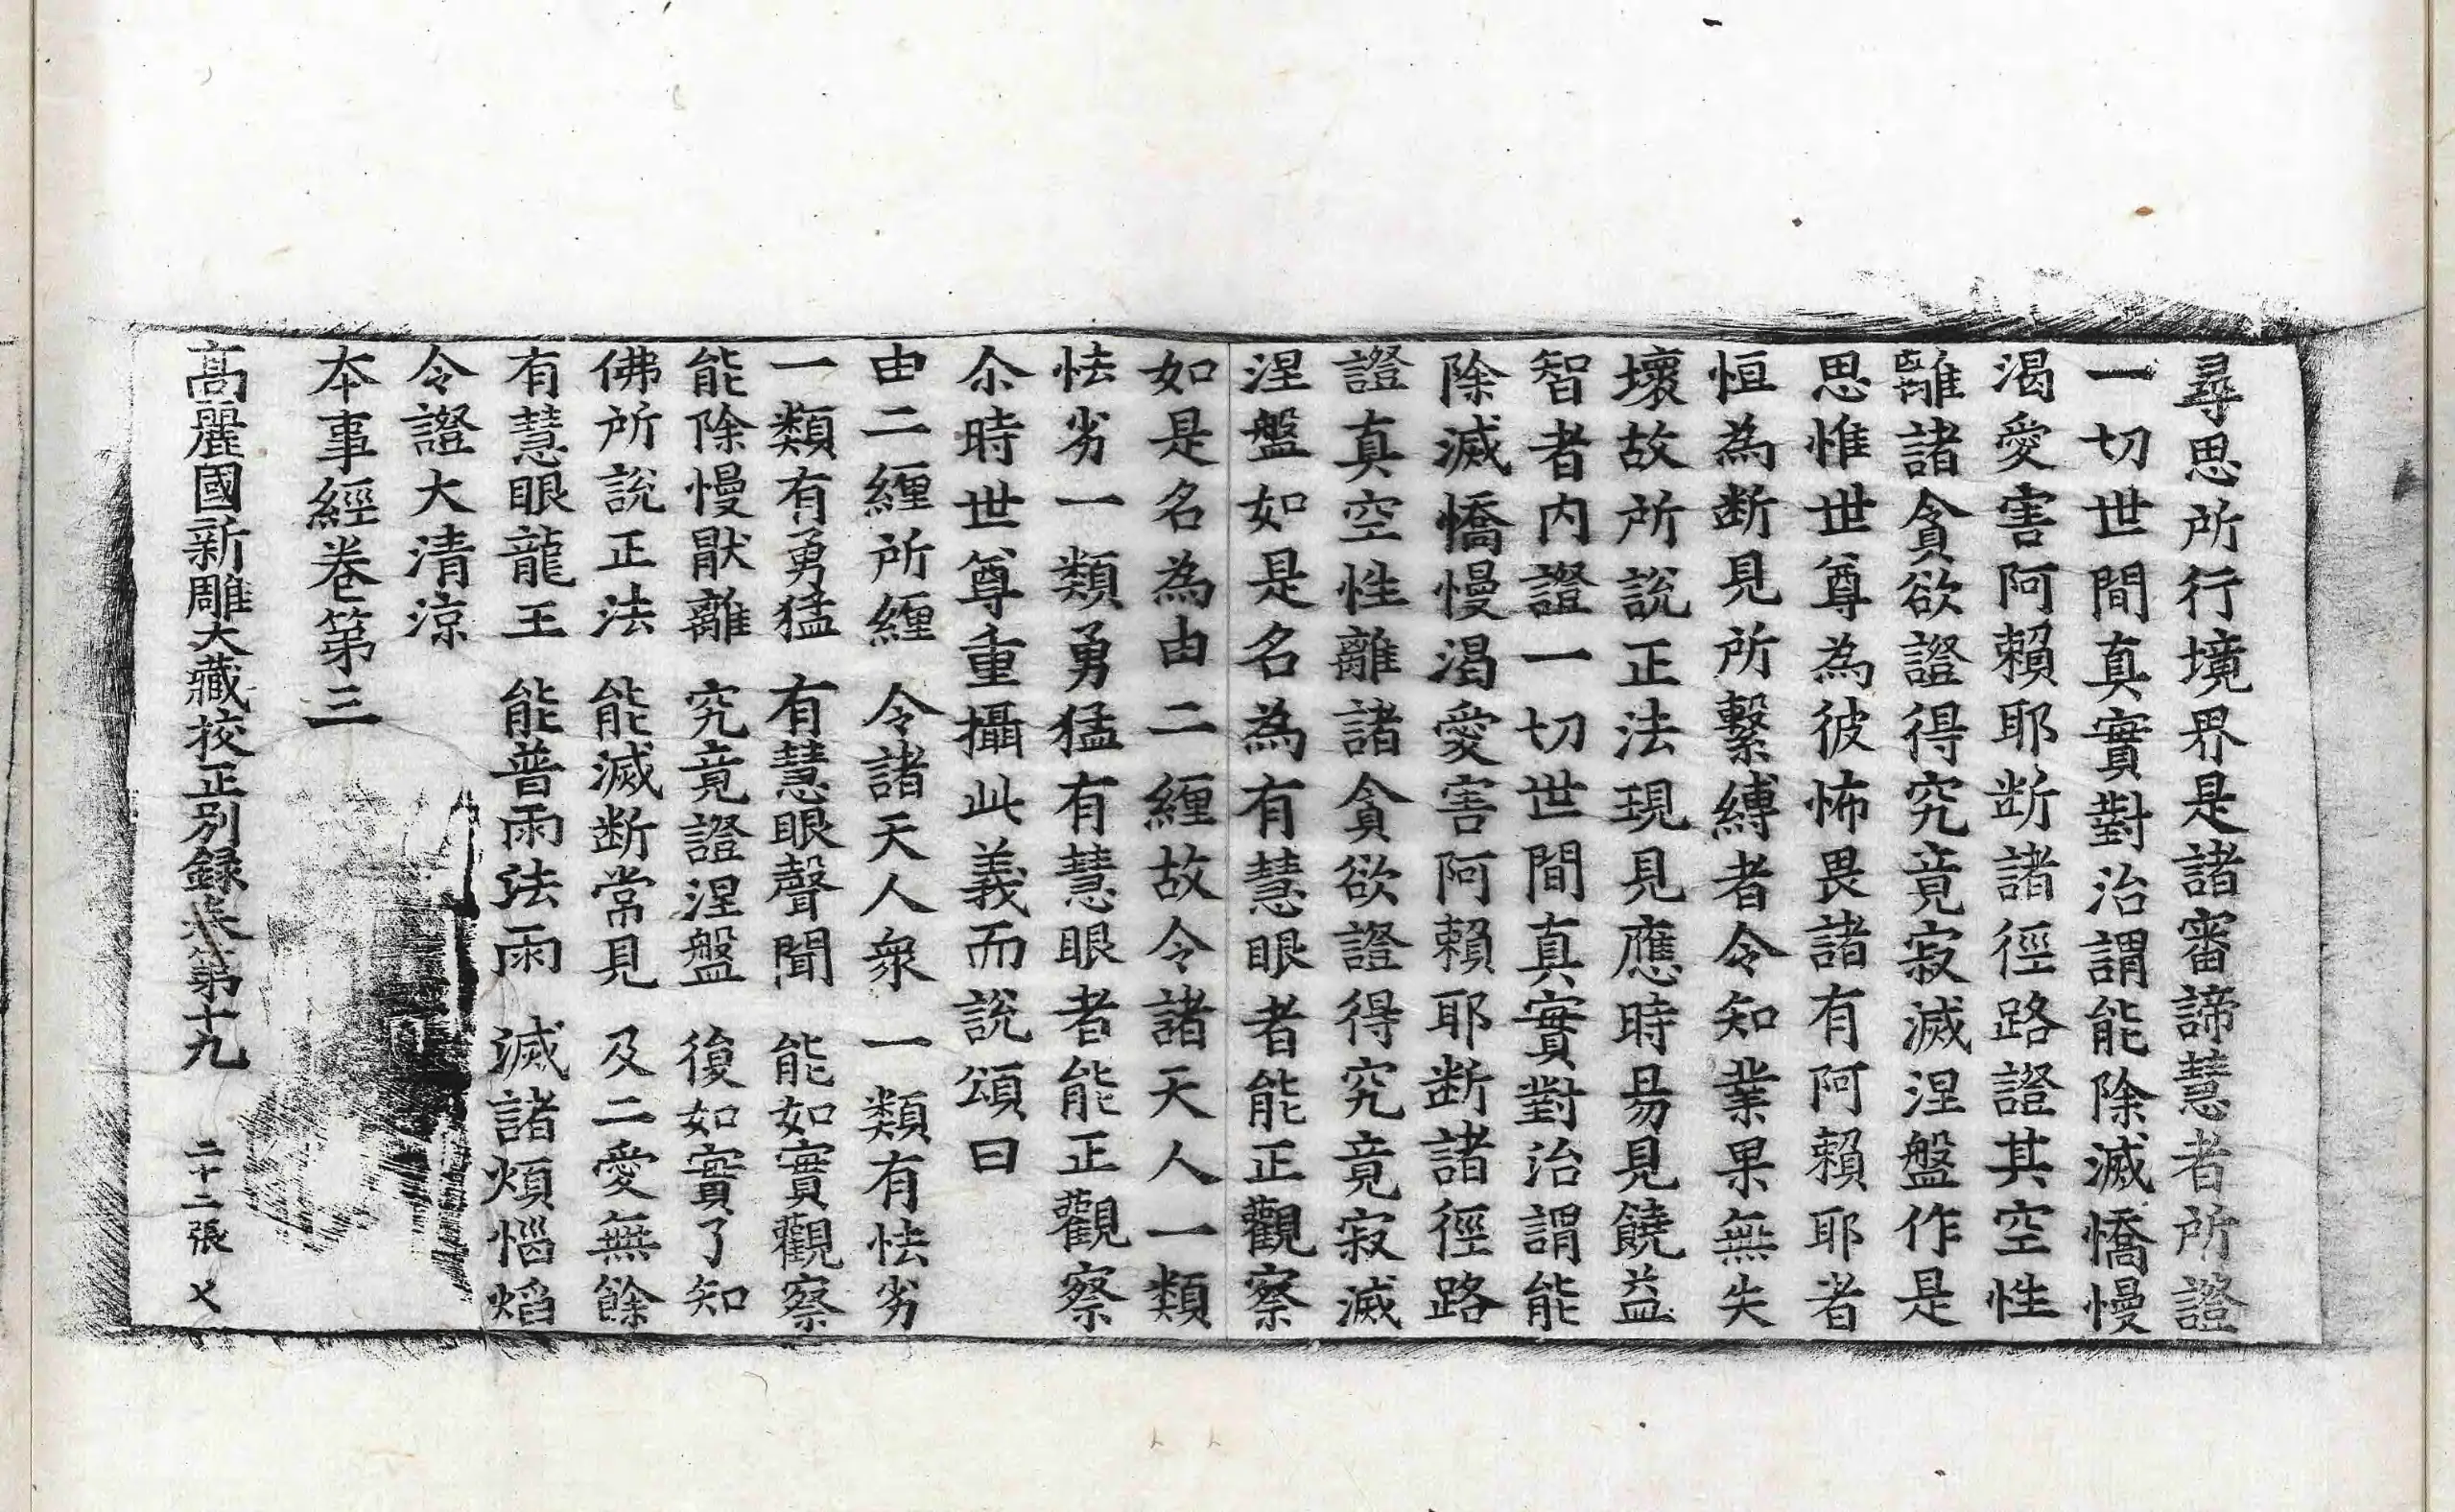 尋思所行境界是諸審諦慧者所證
一切世間真實對治謂能除滅憍慢
渴愛害阿賴耶断諸徑路證其空性
離諸貪欲證得究竟寂滅涅盤作是
思惟世尊為彼怖畏諸有阿賴耶者
恒為断見所繫縛者令知業果無失
壞故所說正法現見應時易見饒益
智者内證一切世間真實對治謂能
除滅憍慢渴愛害阿賴耶断諸徑路
證真空性離諸貪欲證得究竟寂滅
涅盤如是名為有慧眼者能正觀察
如是名為由二纒故令諸天人一類
怯劣一類勇猛有慧眼者能正觀察
尒時世尊重攝此義而說頌曰
由二纒所纒　令諸天人衆　一類有怯劣
一類有勇猛　有慧眼聲聞　能如實觀察
能除慢猒離　究竟證涅盤　復如實了知
佛所說正法　能滅断常見　及二愛無餘
有慧眼龍王　能普雨法雨　滅諸煩惱焰
令證大清涼
本事經卷第三
高麗國新雕大藏校正別録卷第十九　二十二張